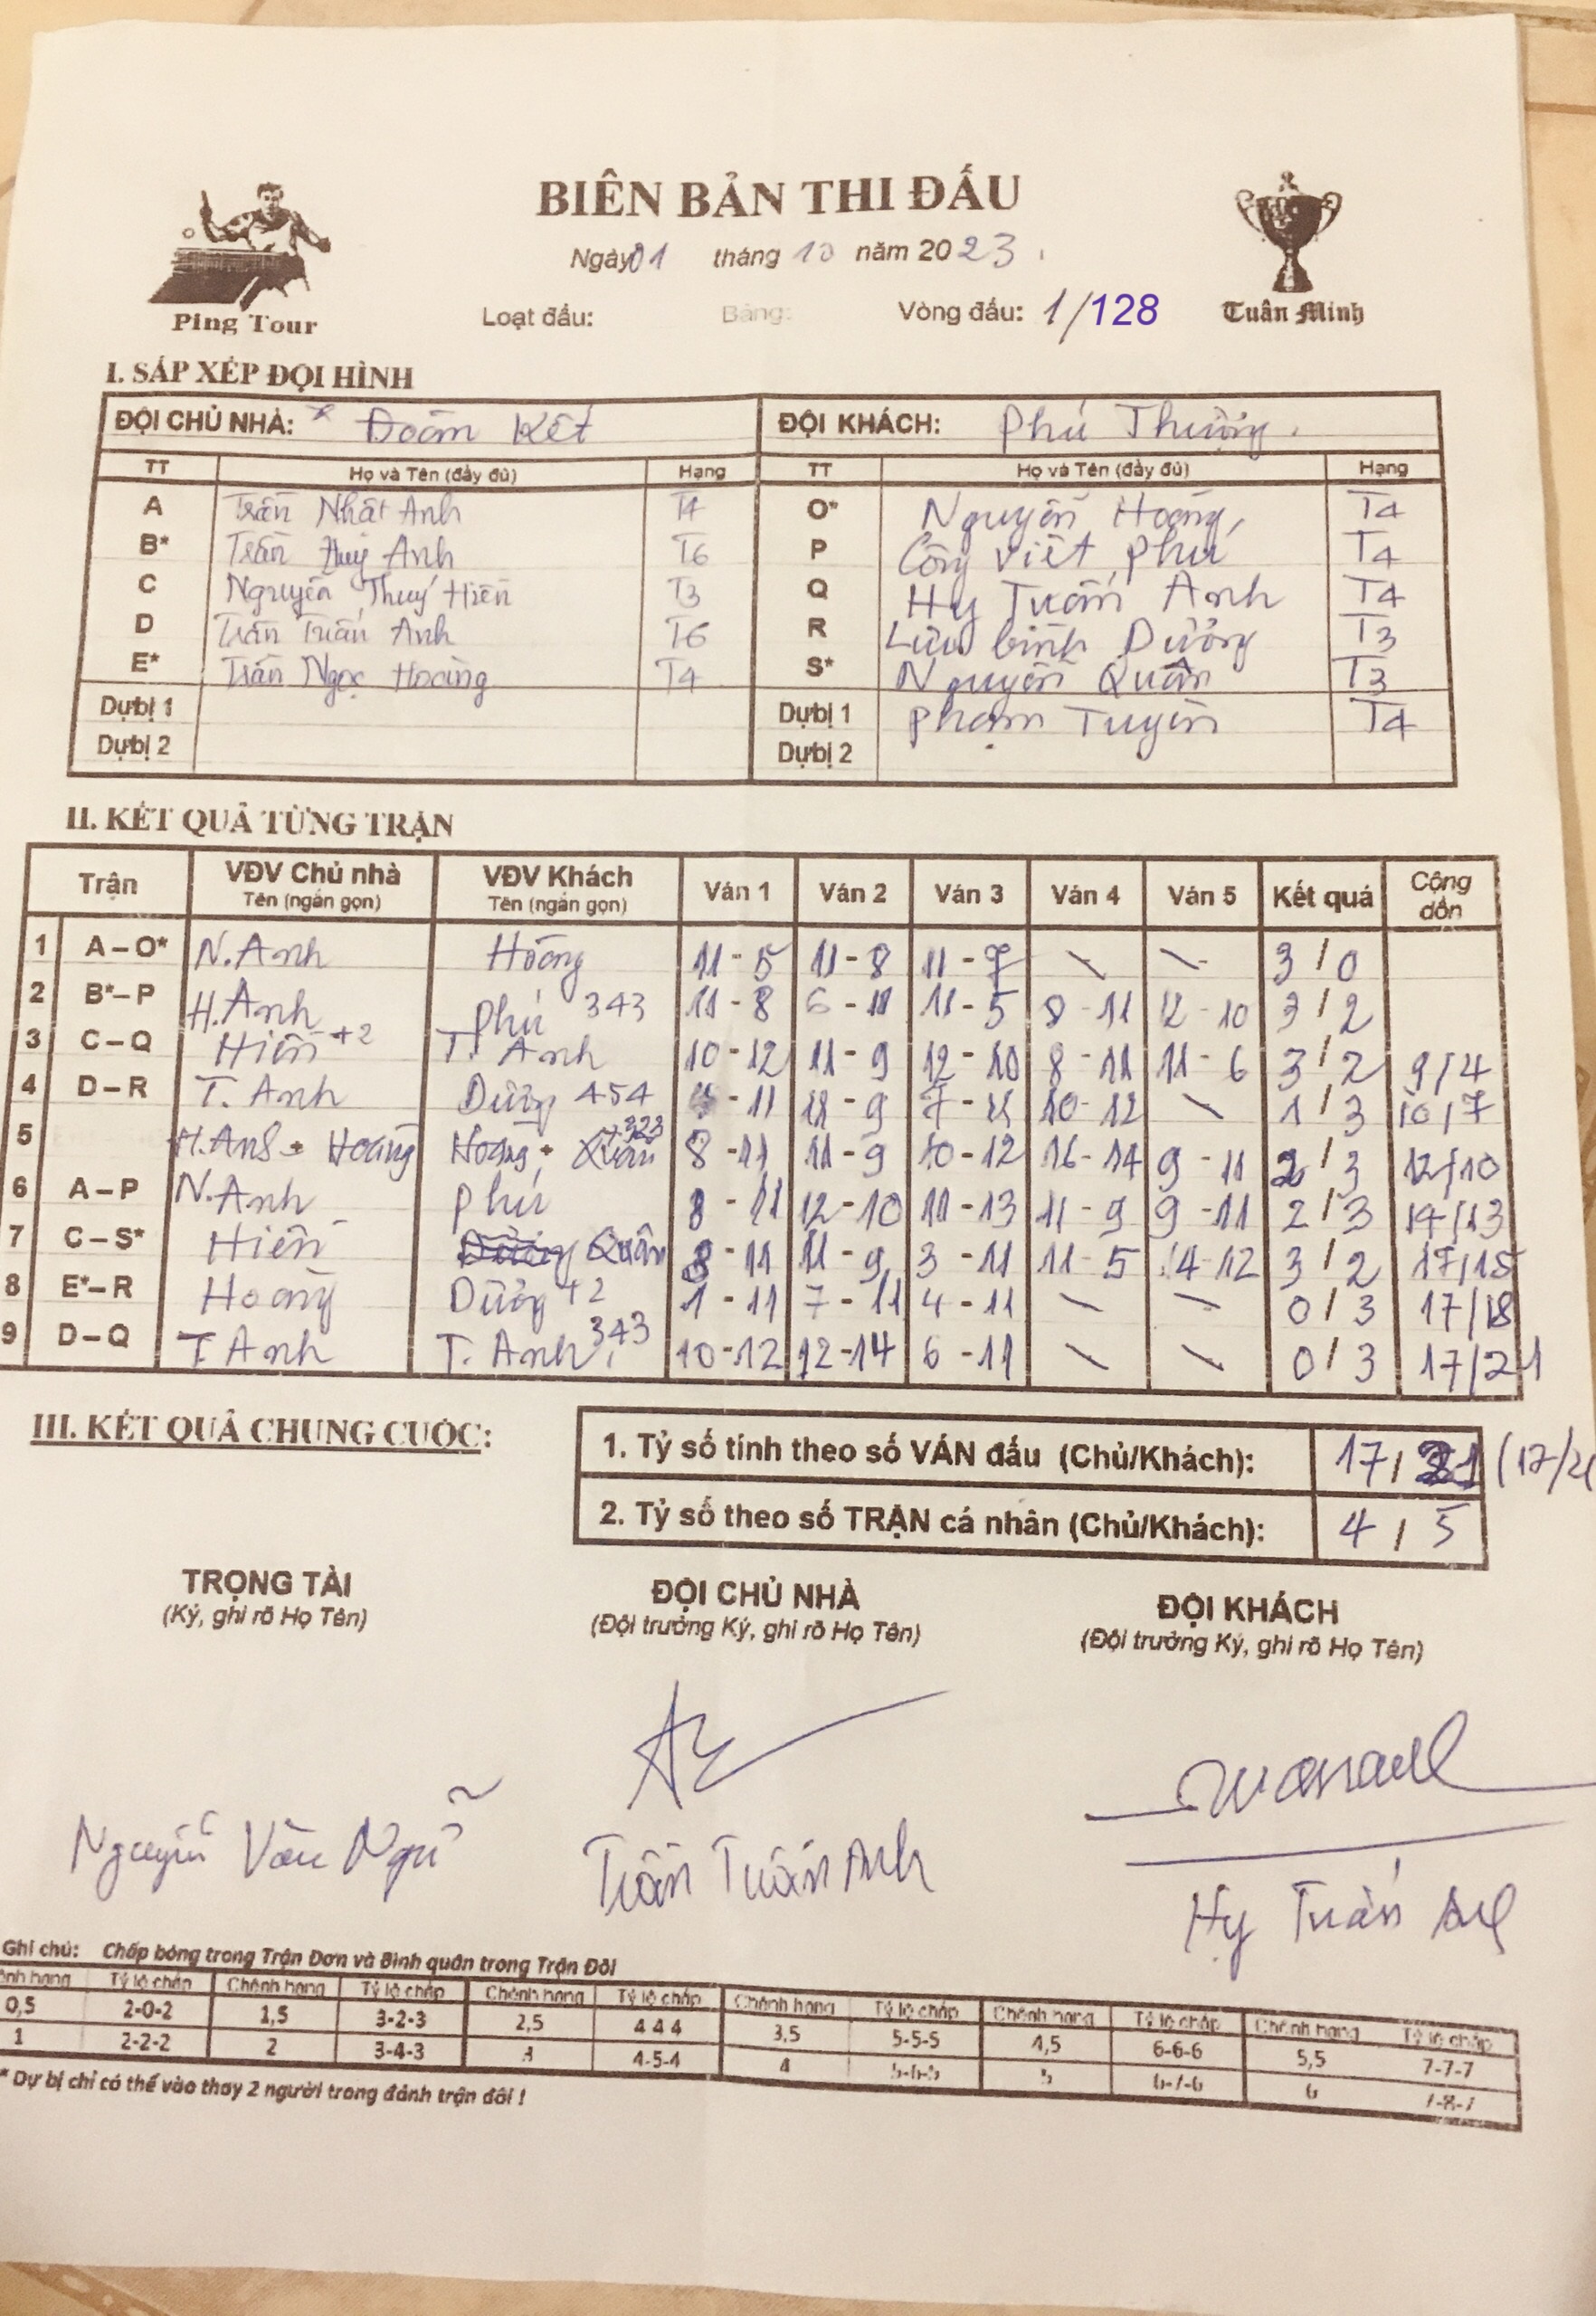 BIÊN BẢN THI ĐẤU
Ngày 01 tháng 10 năm 2023.
Ping Tour
Loạt đấu: Bảng: Vòng đấu: 1/128
Tuân Minh
I. SẮP XẾP ĐỘI HÌNH
ĐỘI CHỦ NHÀ: * Đoàn Kết ĐỘI KHÁCH: Phú Thượng.
TT Họ và Tên (đầy đủ) Hạng TT Họ và Tên (đầy đủ) Hạng
A Trần Nhật Anh T4 O* Nguyễn Hoàng, T4
B* Trần Huy Anh T6 P Công Viết Phú T4
C Nguyễn Thuý Hiền T3 Q Hy Tuấn Anh T4
D Trần Tuấn Anh T6 R Lưu bình Dưỡng T3
E* Trần Ngọc Hoàng T4 S* Nguyễn Quân T3
Dự bị 1 Dự bị 1 Phạm Tuyên T4
Dự bị 2 Dự bị 2
II. KẾT QUẢ TỪNG TRẬN
Trận VĐV Chủ nhà Tên (ngắn gọn) VĐV Khách Tên (ngắn gọn) Ván 1 Ván 2 Ván 3 Ván 4 Ván 5 Kết quả Cộng dồn
1 A – O* N.Anh Hoàng 11-5 11-8 11-7 \ \ 3/0
2 B*– P H.Anh Phú 343 11-8 6-11 11-5 8-11 12-10 3/2
3 C – Q Hiền +2 T. Anh 10-12 11-9 12-10 8-11 11-6 3/2 9/4
4 D – R T. Anh Dưỡng 454 -11 11-9 7-11 10-12 \ 1/3 10/7
5 H.Anh + Hoàng Hoàng + Quân +323 8-11 11-9 10-12 16-14 9-11 2/3 12/10
6 A – P N.Anh Phú 8-11 12-10 11-13 11-9 9-11 2/3 14/13
7 C – S* Hiền Quân 8-11 11-9 3-11 11-5 14-12 3/2 17/15
8 E*– R Hoàng Dưỡng +2 1-11 7-11 4-11 \ \ 0/3 17/18
9 D – Q T Anh T. Anh 343 10-12 12-14 6-11 \ \ 0/3 17/21
III. KẾT QUẢ CHUNG CUỘC:
1. Tỷ số tính theo số VÁN đấu (Chủ/Khách): 17/21 (17/21
2. Tỷ số theo số TRẬN cá nhân (Chủ/Khách): 4/5
TRỌNG TÀI ĐỘI CHỦ NHÀ ĐỘI KHÁCH
(Ký, ghi rõ Họ Tên) (Đội trưởng Ký, ghi rõ Họ Tên) (Đội trưởng Ký, ghi rõ Họ Tên)
Nguyễn Văn Ngũ Trần Tuấn Anh Hy Tuấn Anh
Ghi chú: Chấp bóng trong Trận Đơn và Bình quân trong Trận Đôi
ênh hạng Tỷ lệ chấp Chênh hạng Tỷ lệ chấp Chênh hạng Tỷ lệ chấp Chênh hạng Tỷ lệ chấp Chênh hạng Tỷ lệ chấp Chênh hạng Tỷ lệ chấp
0,5 2-0-2 1,5 3-2-3 2,5 4 4 4 3,5 5-5-5 4,5 6-6-6 5,5 7-7-7
1 2-2-2 2 3-4-3 3 4-5-4 4 5-6-5 5 6-7-6 6 7-8-7
* Dự bị chỉ có thể vào thay 2 người trong đánh trận đôi !